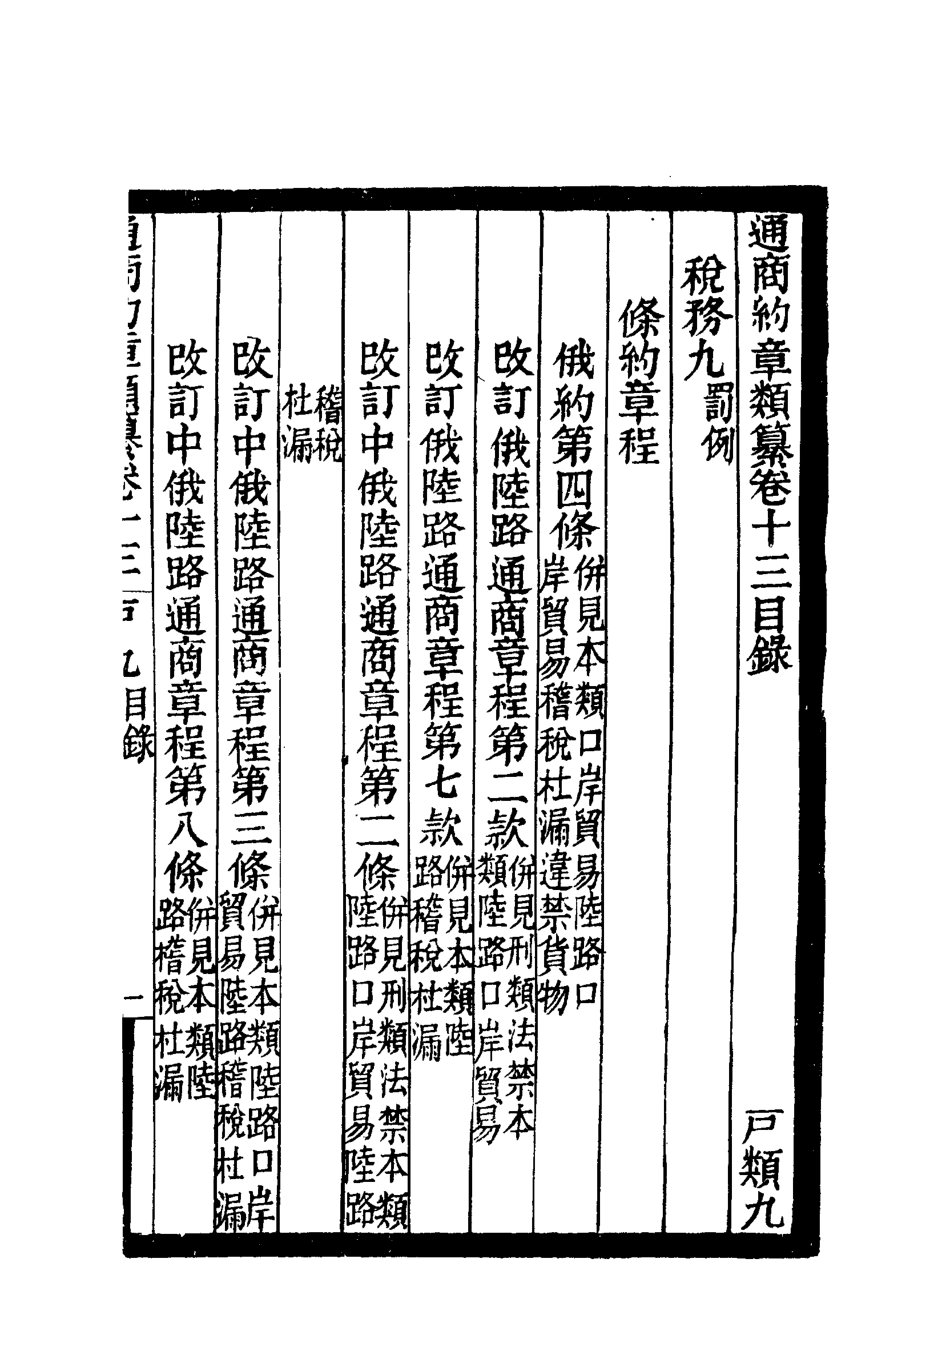 通商約章類纂卷十三目錄 戶類九
稅務九罰例
條約章程
俄約第四條併見本類口岸貿易陸路口岸貿易稽稅杜漏違禁貨物
改訂俄陸路通商章程第二款併見刑類法禁本類陸路口岸貿易
改訂俄陸路通商章程第七款併見本類陸路稽稅杜漏
改訂中俄陸路通商章程第二條併見刑類法禁本類陸路口岸貿易陸路
稽稅杜漏
改訂中俄陸路通商章程第三條併見本類陸路口岸貿易陸路稽稅杜漏
改訂中俄陸路通商章程第八條併見本類陸路稽稅杜漏
通商約章類纂卷十三 戶九目錄 一